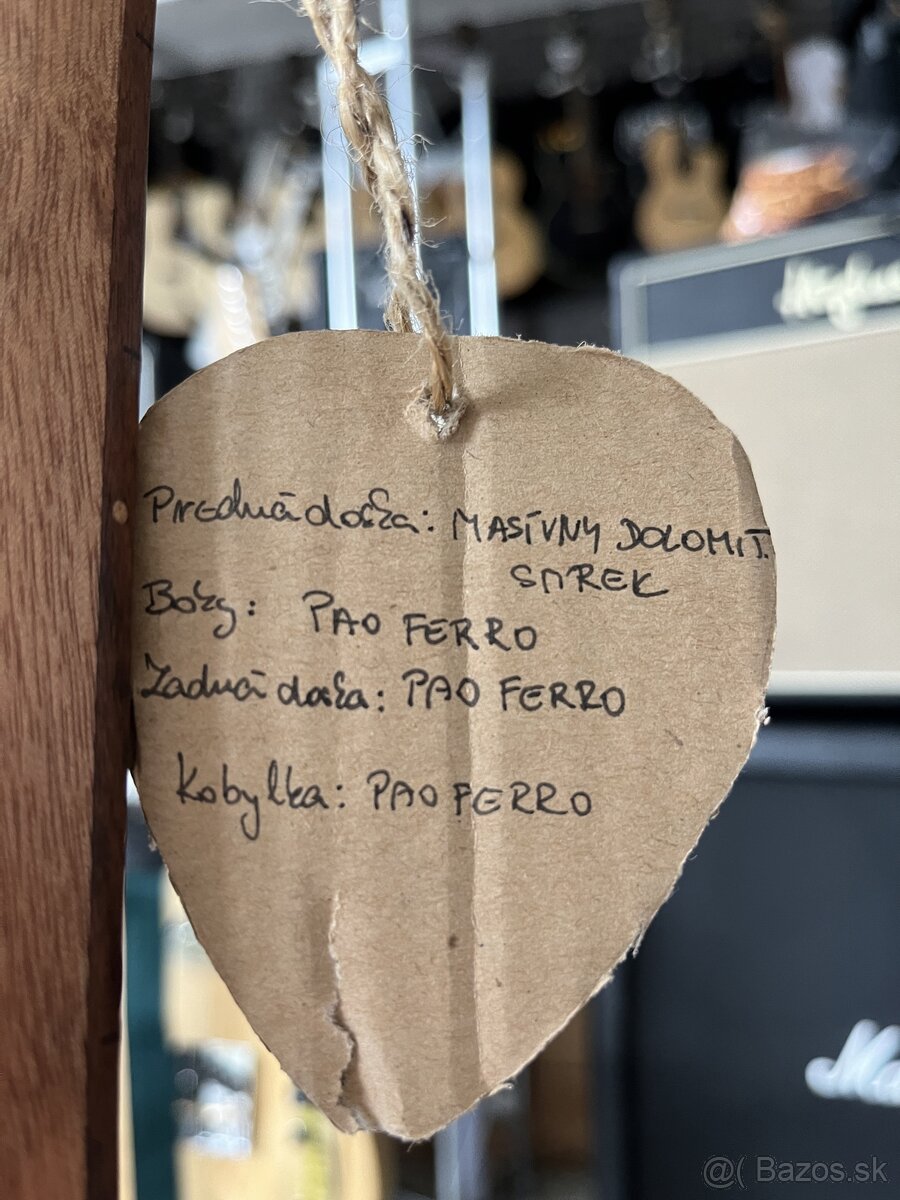 Predná doska: MASÍVNY DOLOMIT.
SMREK
Boky: PAO FERRO
Zadná doska: PAO FERRO
Kobylka: PAO FERRO
@( Bazos.sk